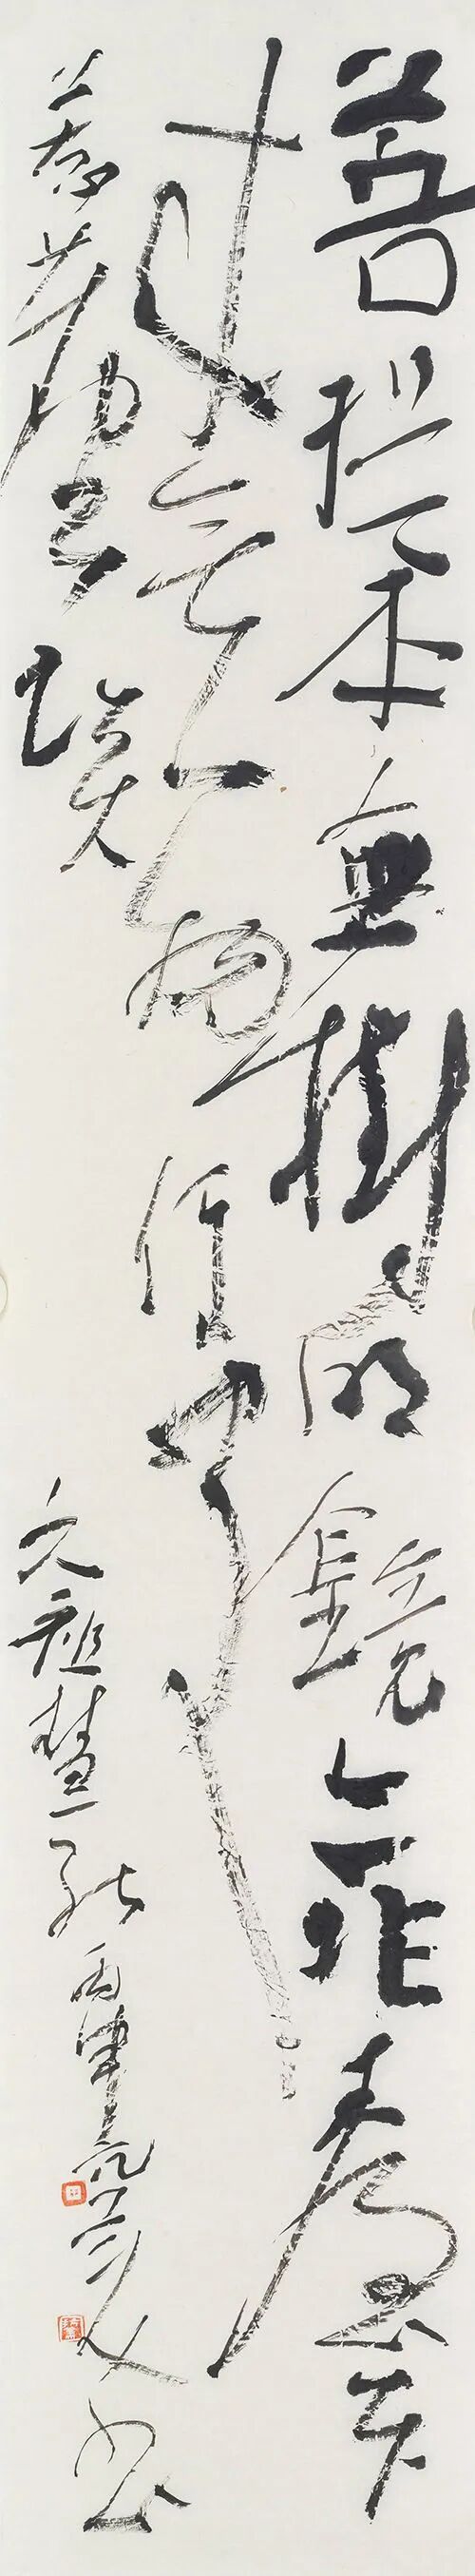 菩提本無樹明鏡亦非臺本
來無一物何處
惹塵埃 六祖慧能 書